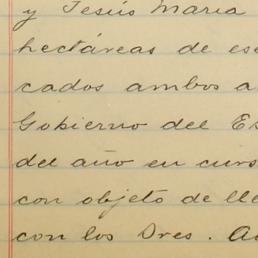 y Jesús María
hectáreas de ese
cados ambos a
Gobierno del Es
del año en curs
con objeto de lle
con los Dres. Au